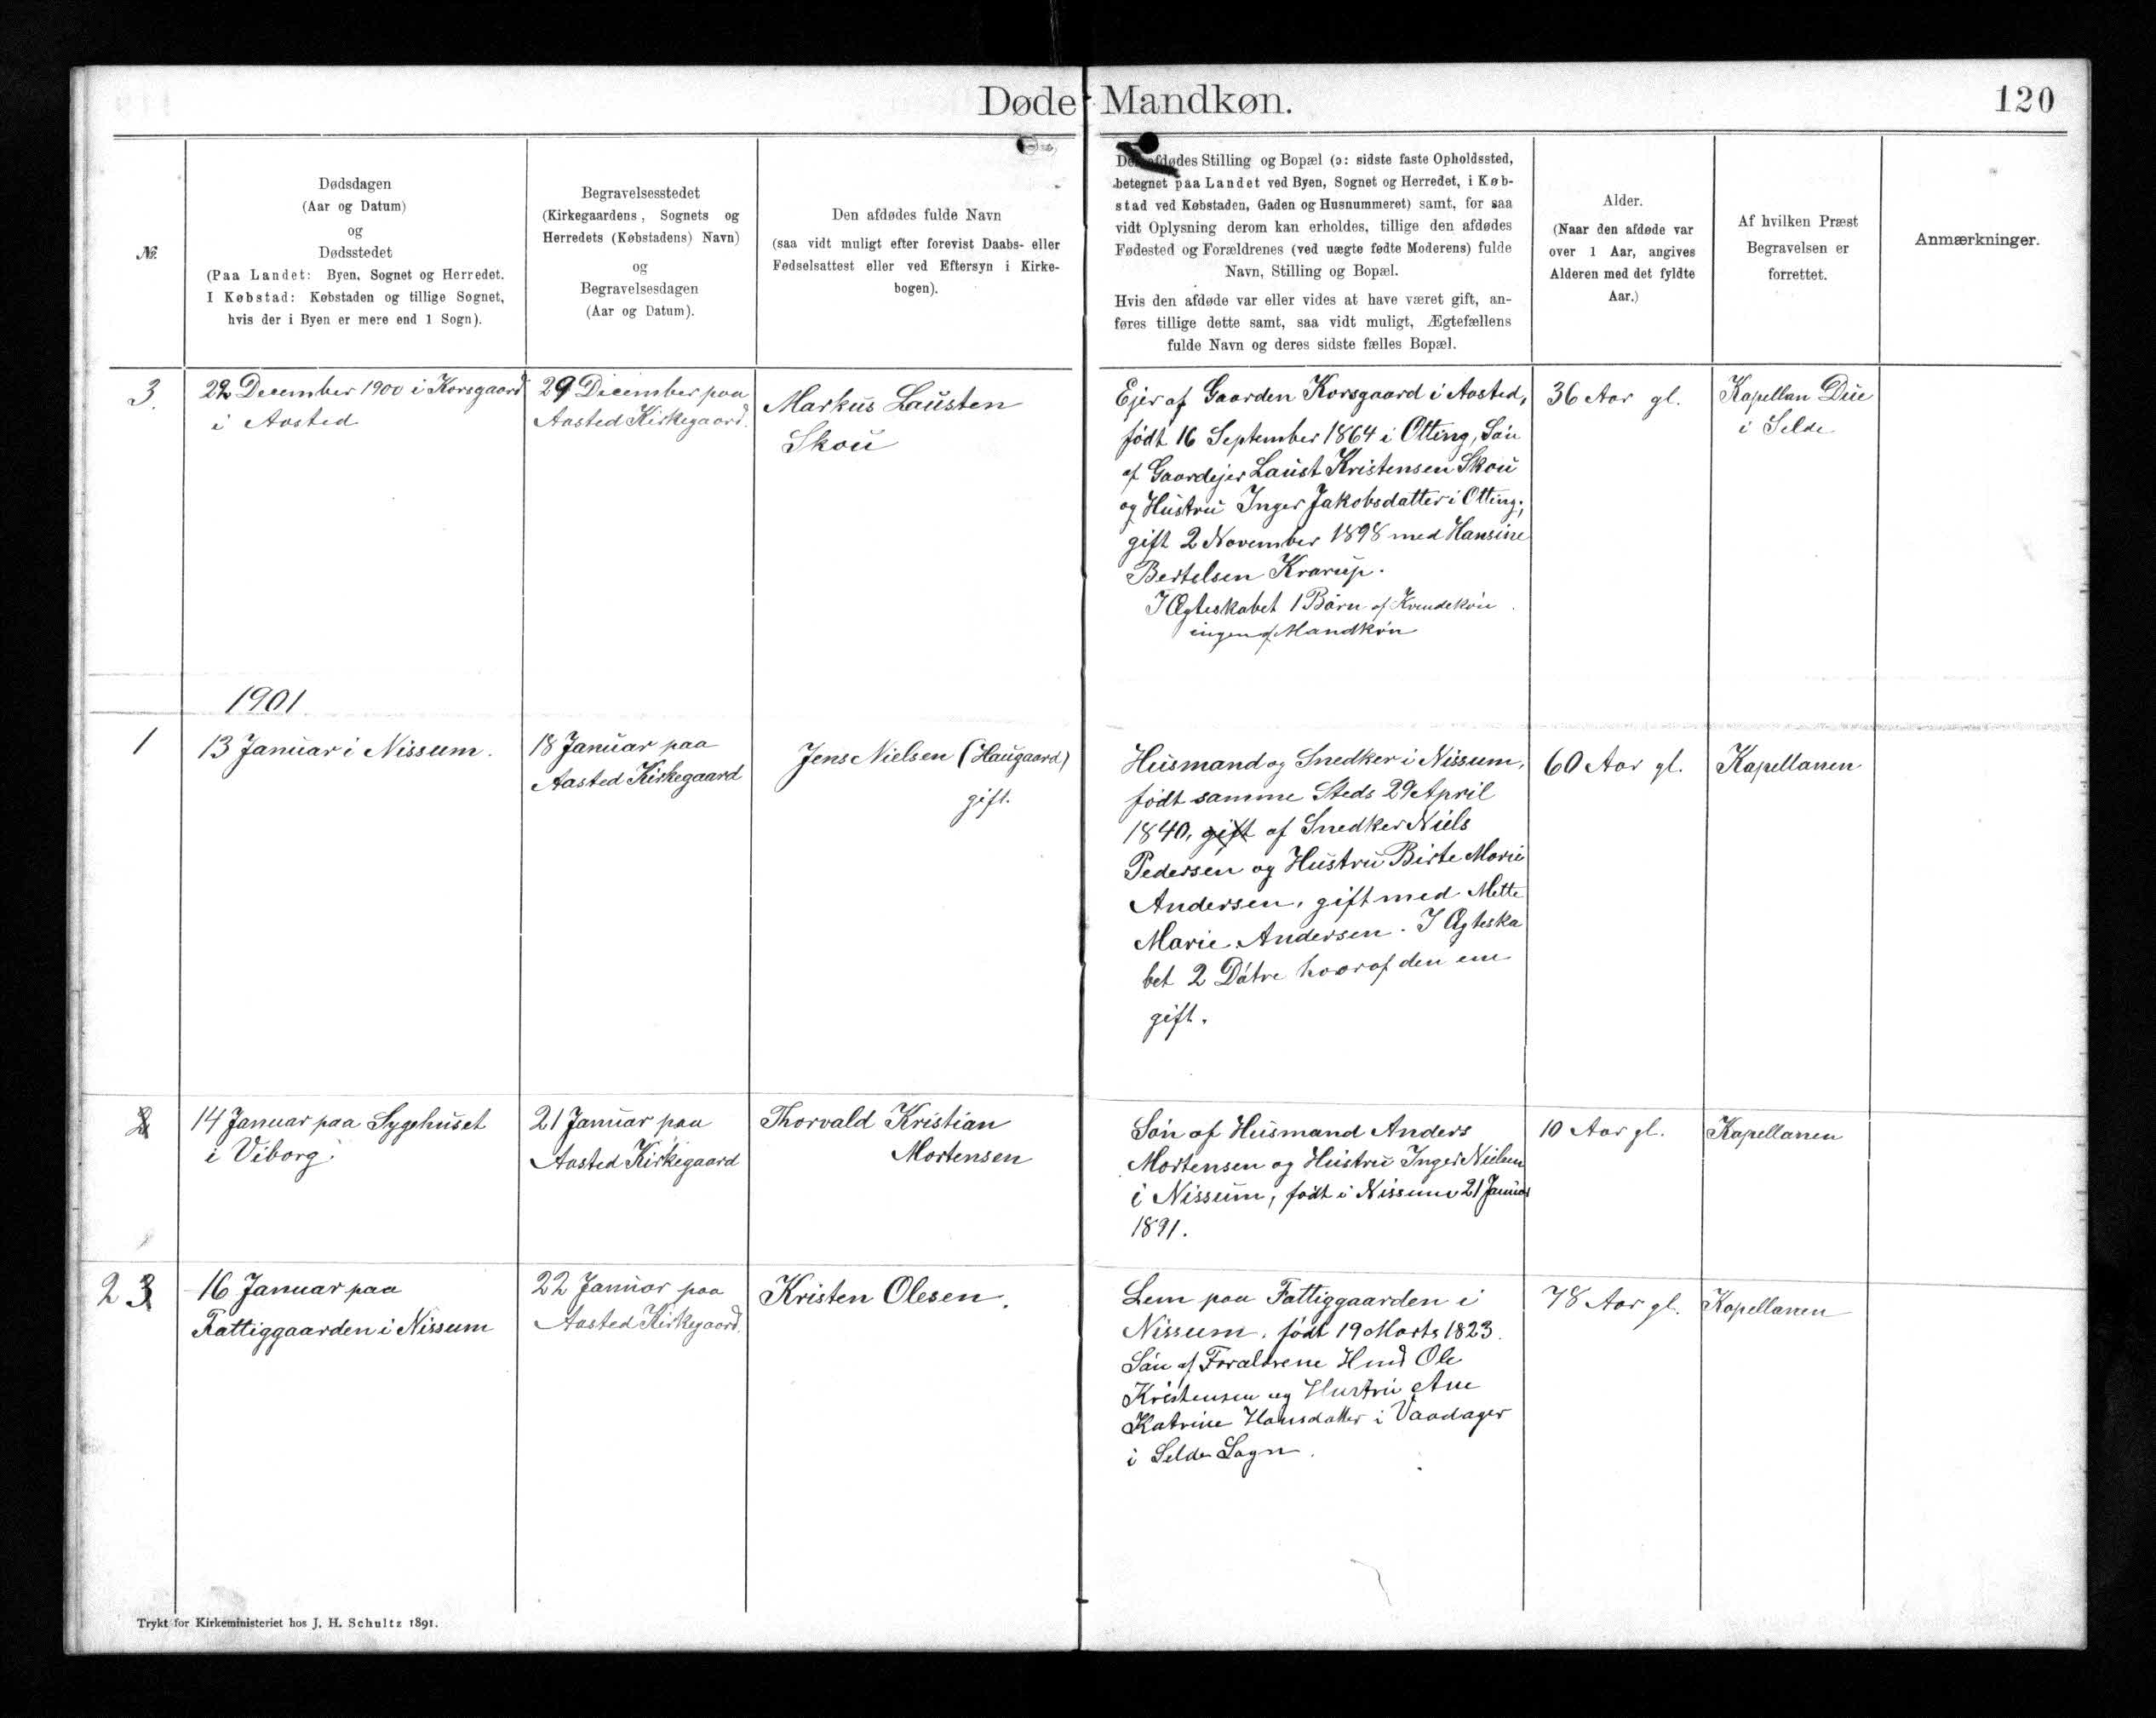 Døde Mandkøn.
120
№
Dødsdagen
(Aar og Datum)
og
Dødsstedet
(Paa Landet: Byen, Sognet og Herredet.
I Købstad: Købstaden og tillige Sognet,
hvis der i Byen er mere end 1 Sogn).
Begravelsesstedet
(Kirkegaardens, Sognets og
Herredets (Købstadens) Navn)
og
Begravelsesdagen
(Aar og Datum).
Den afdødes fulde Navn
(saa vidt muligt efter forevist Daabs- eller
Fødselsattest eller ved Eftersyn i Kirke-
bogen).
Den afdødes Stilling og Bopæl (ɔ: sidste faste Opholdssted,
betegnet paa Landet ved Byen, Sognet og Herredet, i Køb-
stad ved Købstaden, Gaden og Husnummeret) samt, for saa
vidt Oplysning derom kan erholdes, tillige den afdødes
Fødested og Forældrenes (ved uægte fødte Moderens) fulde
Navn, Stilling og Bopæl.
Hvis den afdøde var eller vides at have været gift, an-
føres tillige dette samt, saa vidt muligt, Ægtefællens
fulde Navn og deres sidste fælles Bopæl.
Alder.
(Naar den afdøde var
over 1 Aar, angives
Alderen med det fyldte
Aar.)
Af hvilken Præst
Begravelsen er
forrettet.
Anmærkninger.
3.
22 December 1900 i Korsgaard
i Aasted
29 December paa
Aasted Kirkegaard.
Markus Lausten
Skou
Ejer af Gaarden Korsgaard i Aasted,
født 16 September 1864 i Otting, Søn
af Gaardejer Laust Kristensen Skou
og Hustru Inger Jakobsdatter i Otting;
gift 2 November 1898 med Hansine
Bertelsen Krarup.
I Ægteskabet 1 Barn af Kvindekøn
ingen af Mandkøn
36 Aar gl.
Kapellan Due
i Selde
1901
1
13 Januar i Nissum.
18 Januar paa
Aasted Kirkegaard
Jens Nielsen (Haugaard)
gift.
Husmand og Snedker i Nissum,
født samme Steds 29 April
1840, gift af Snedker Niels
Pedersen og Hustru Birte Marie
Andersen, gift med Mette
Marie Andersen. I Ægteska
bet 2 Døtre hvoraf den ene
gift.
60 Aar gl.
Kapellanen
2
14 Januar paa Sygehuset
i Viborg.
21 Januar paa
Aasted Kirkegaard
Thorvald Kristian
Mortensen
Søn af Husmand Anders
Mortensen og Hustru Inger Nielsen
i Nissum, født i Nissum 21 Januar
1891.
10 Aar gl.
Kapellanen
2 3
16 Januar paa
Fattiggaarden i Nissum
22 Januar paa
Aasted Kirkegaard.
Kristen Olesen.
Lem paa Fattiggaarden i
Nissum, født 19 Marts 1823.
Søn af Forældrene Hmd Ole
Kristensen og Hustru Ane
Katrine Hansdatter i Vaadager
i Selde Sogn.
78 Aar gl.
Kapellanen
Trykt for Kirkeministeriet hos J. H. Schultz 1891.